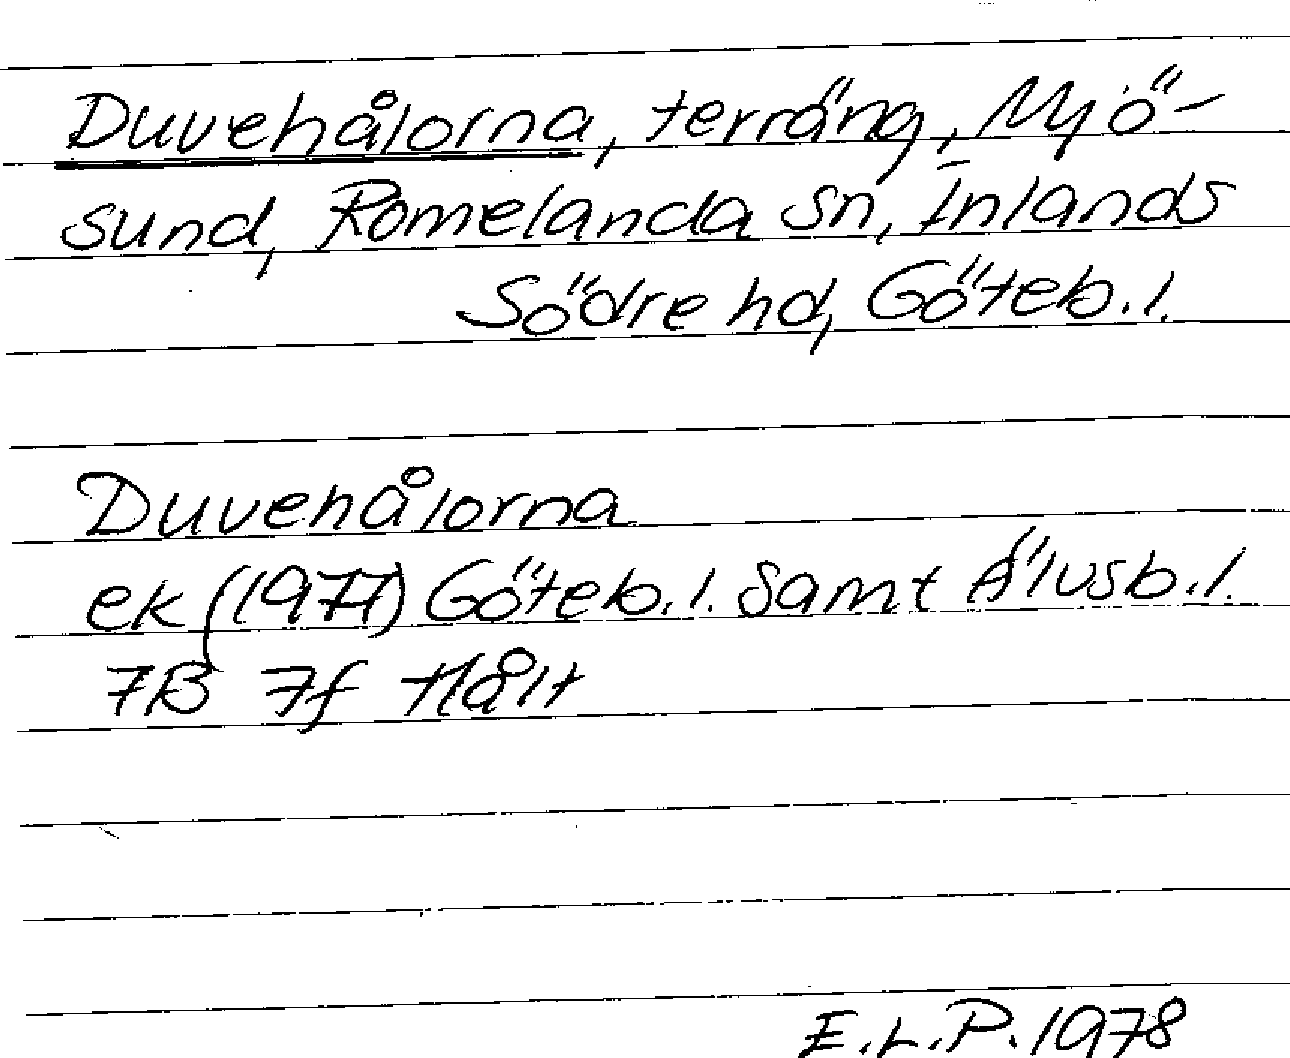 Duvehålorna, terräng, Mjö-
sund, Romelanda sn, Inlands
Södre hd, Göteb.l.
Duvehålorna
ek (1977) Göteb.l. samt Älvsb.l.
7B 7f Hålt
E.L.P. 1978